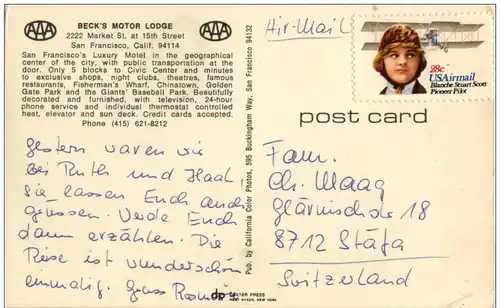 AAA
BECK'S MOTOR LODGE
2222 Market St. at 15th Street
San Francisco, Calif. 94114
AAA
San Francisco's Luxury Motel in the geographical
center of the city, with public transportation at the
door. Only 5 blocks to Civic Center and minutes
to exclusive shops, night clubs, theatres, famous
restaurants, Fisherman's Wharf, Chinatown, Golden
Gate Park and the Giants' Baseball Park. Beautifully
decorated and furnished, with television, 24-hour
phone service and individual thermostat controlled
heat, elevator and sun deck. Credit cards accepted.
Phone (415) 621-8212
gestern waren wir
bei Ruth und
Sie lassen Euch auch
grüssen. Werde Euch
dann erzählen. Die
Reise ist wunderschön
einmalig. Gruss
DEXTER PRESS
WEST NYACK, NEW YORK
Pub. by California Color Photos, 595 Buckingham Way, San Francisco 94132
Air-Mail
28c
USAirmail
Blanche Stuart Scott
Pioneer Pilot
post card
Fam.
Ch. Maag
Glärnischstr. 18
8712 Stäfa
Switzerland